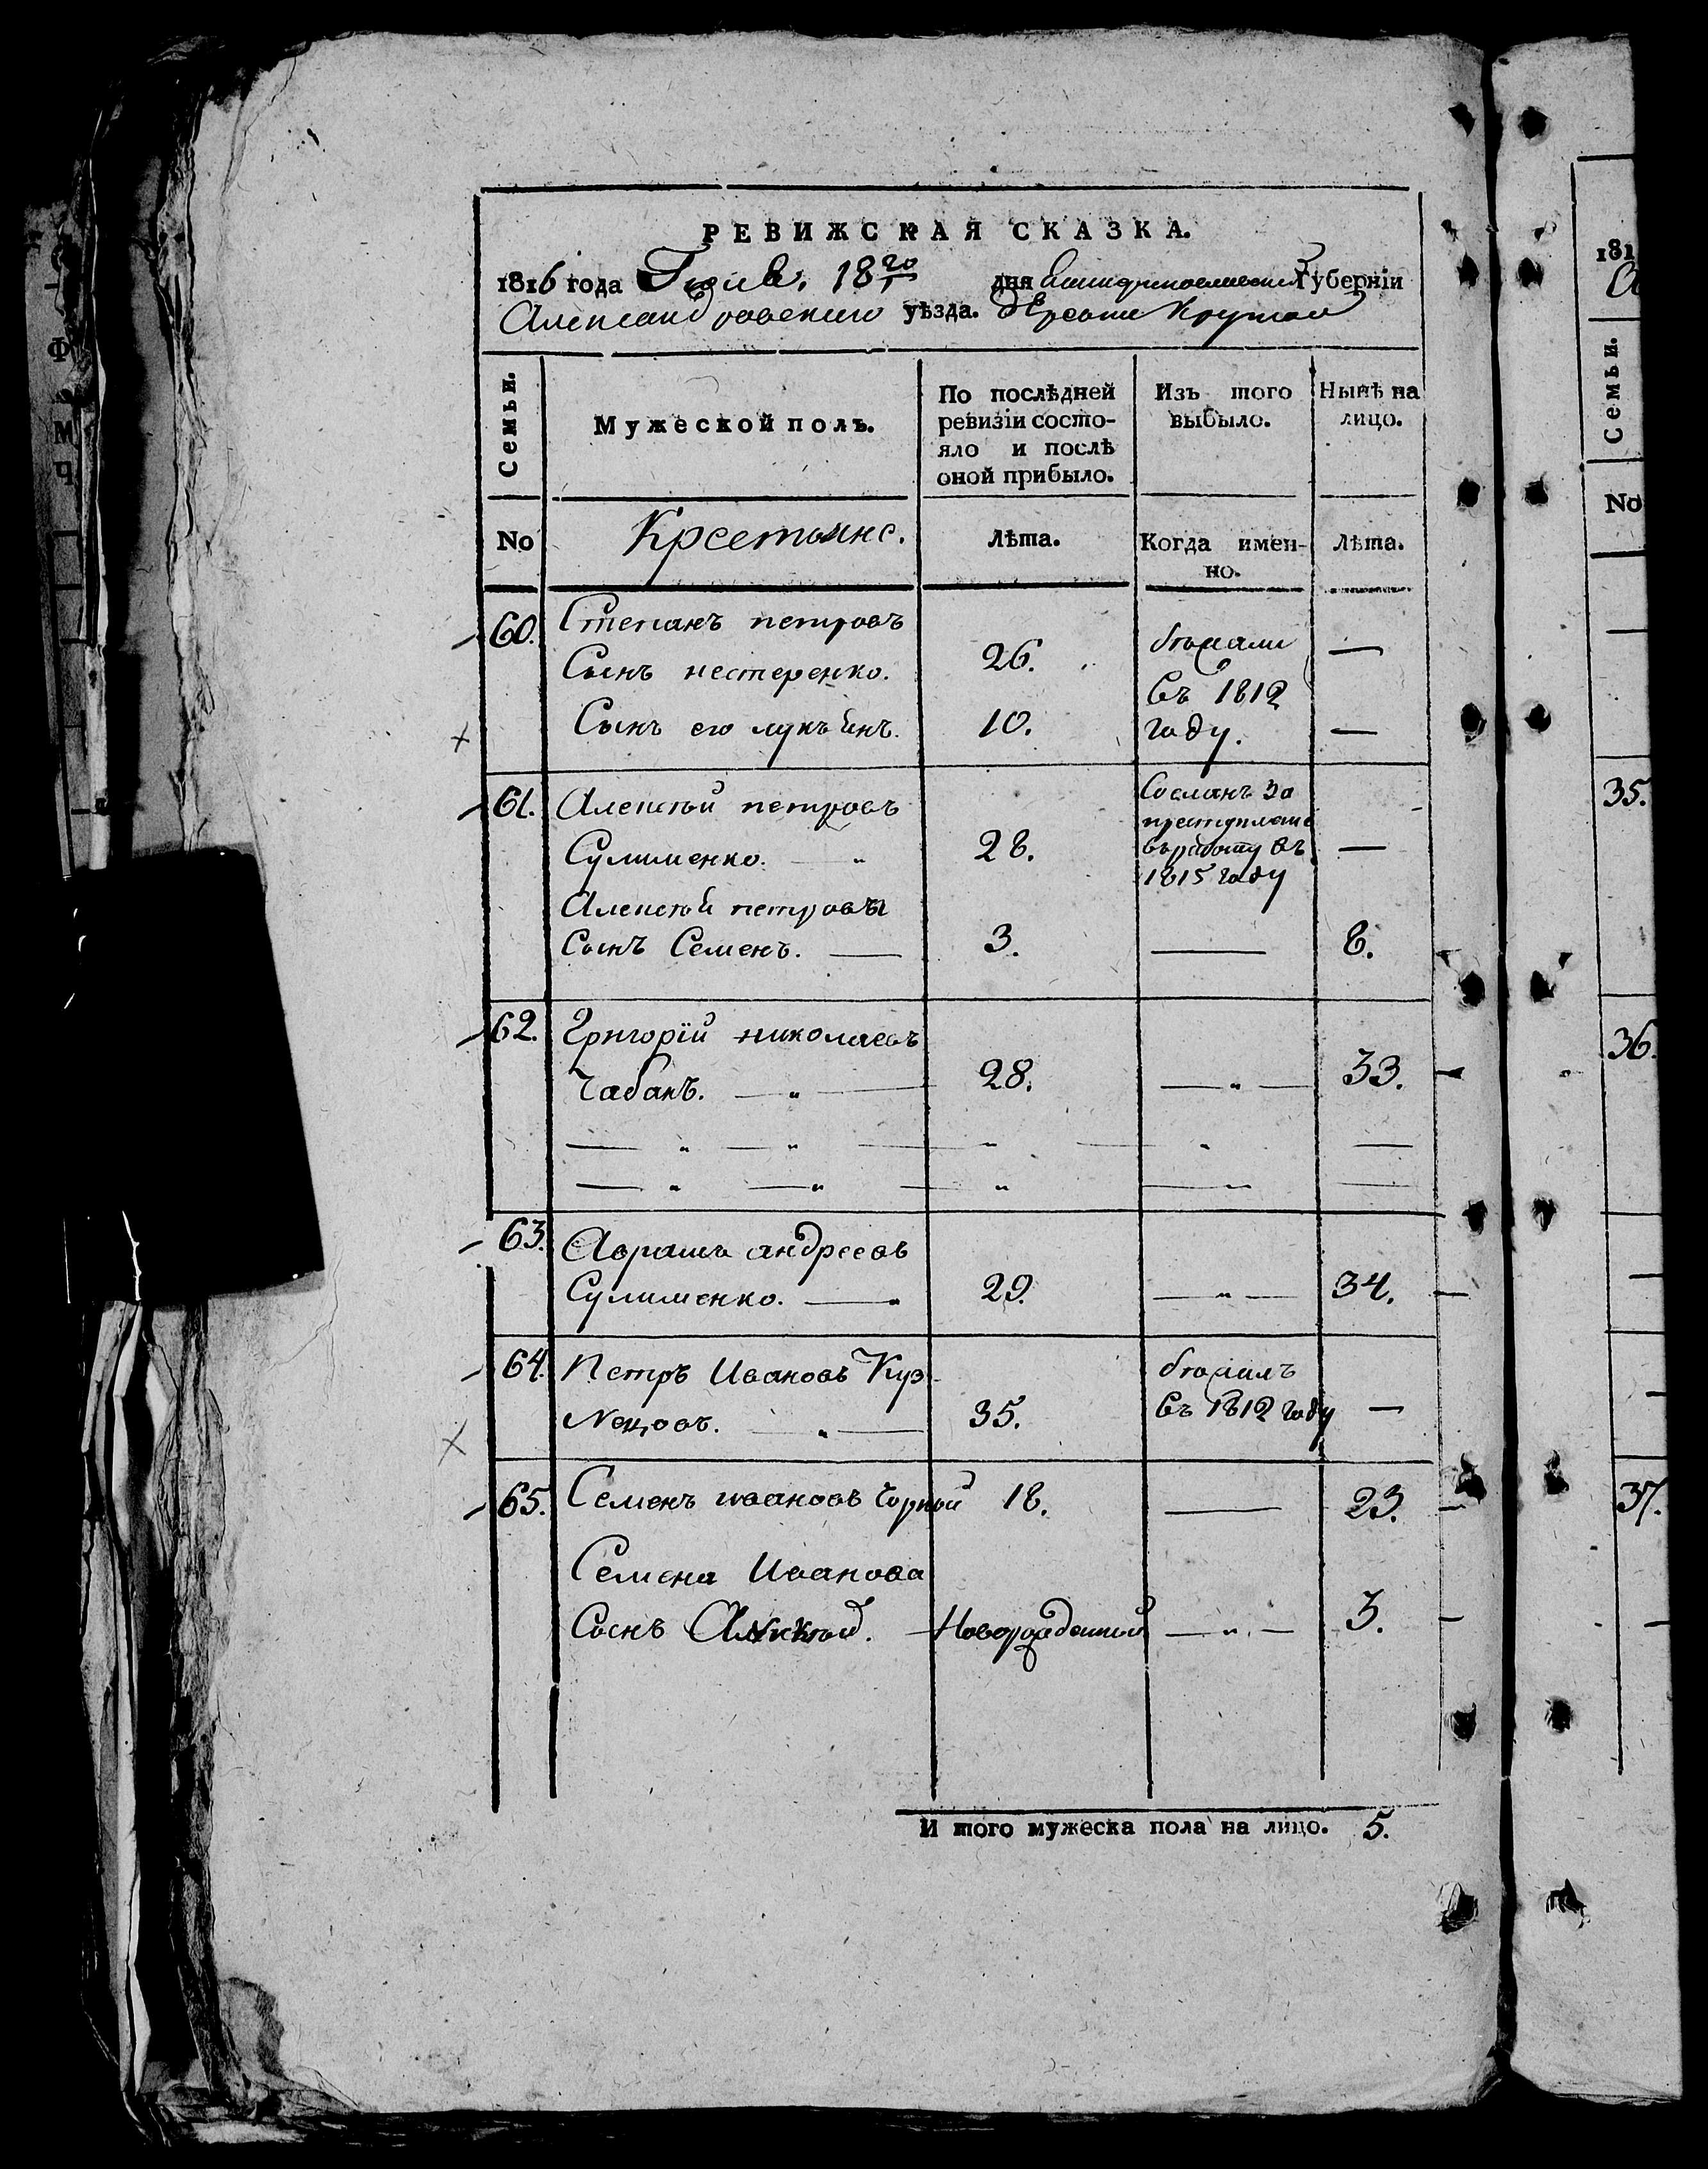 РЕВИЖСКАЯ СКАЗКА.
1816 года 18го дня Екатеринославской Губерніи
Александровского уѣзда.
Семьи.
Мужеской полъ.
По послѣдней
ревизіи состо-
яло и послѣ
оной прибыло.
Изъ того
выбыло.
Нынѣ на
лицо.
No Крестьяне. Лѣта. Когда имен-
но. Лѣта.
60. Степанъ петровъ
Сынъ нестеренко. 26. бѣжали —
въ 1812
Сынъ его 10. году. —
61. Алексѣй петровъ Сосланъ за
преступление
Сулименко. — " 28. въ работу въ —
1815 году
Алексѣя петрова
Сынъ Семенъ. — 3. — 8.
62. Григорій николаевъ
Чабанъ. — " — 28. — " — 33.
— " — " — " — " —
— " — " — " — " —
63. Аврамъ андреевъ
Сулименко. — " 29. — " — 34.
64. Петръ Ивановъ Куз- бѣжалъ
Nецовъ. — " — 35. въ 1812 году —
65. Семенъ ивановъ Чорной 18. — 23.
Семена Иванова
Сынъ Алексѣй. Новорожденной — " — 3.
И того мужеска пола на лицо. 5.
181
Семьи.
No
35.
36.
37.
Ф
М
Ч